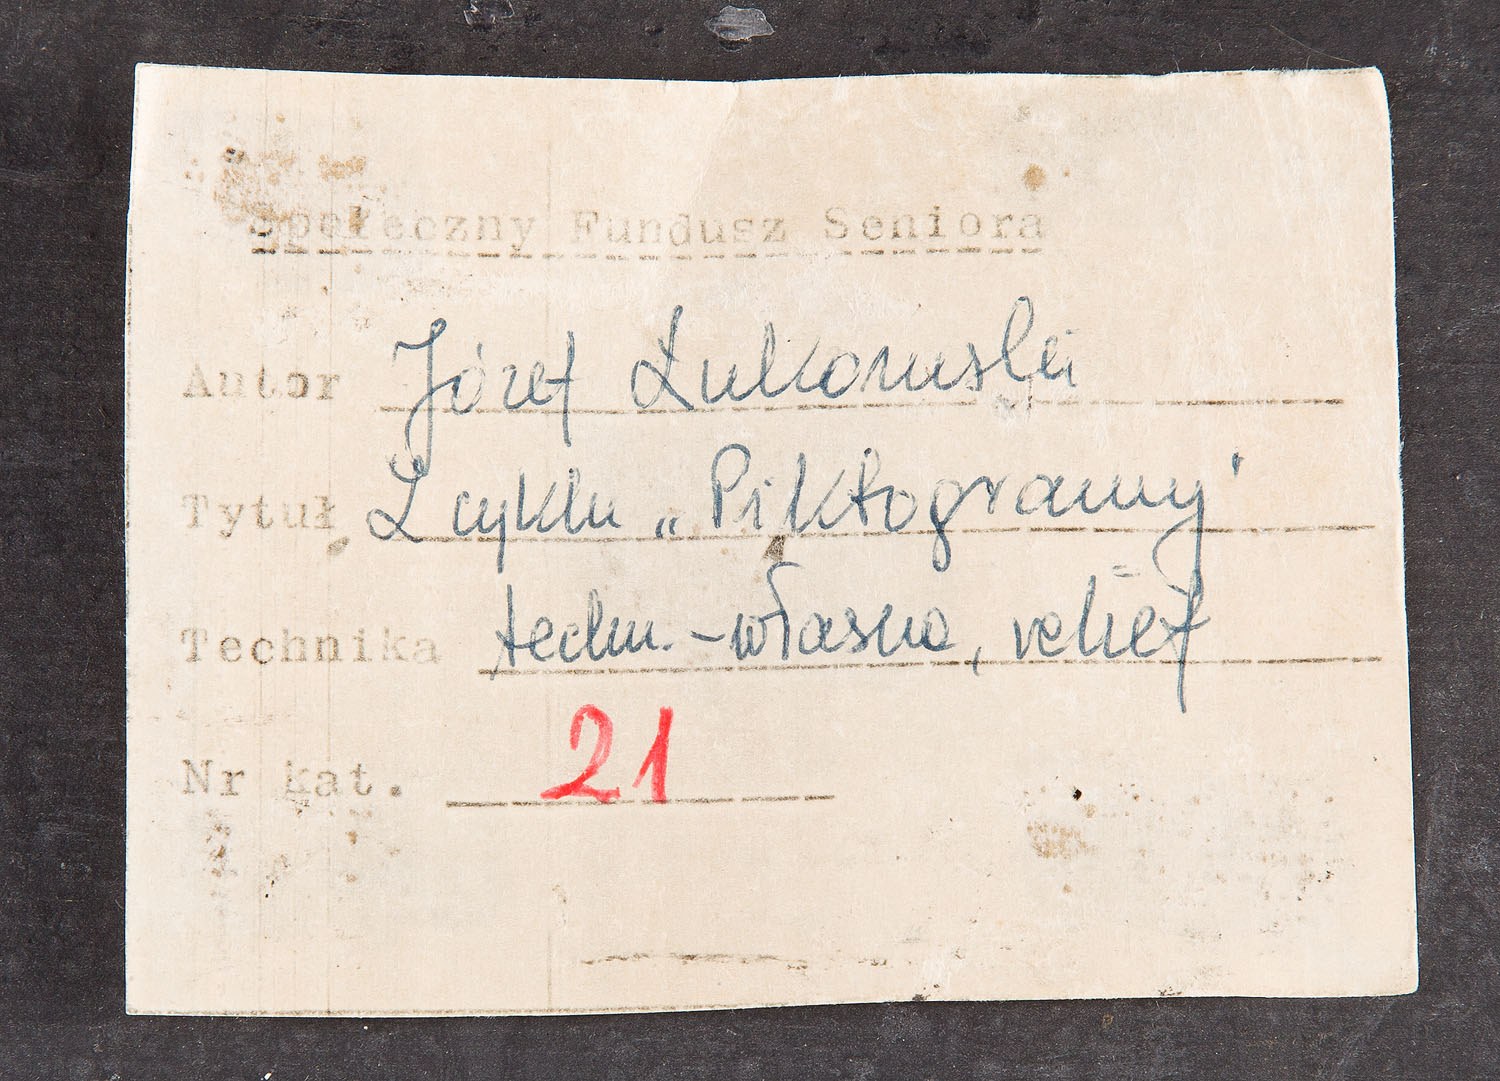 Społeczny Fundusz Seniora
Autor Józef Łukomski
Tytuł Z cyklu „Piktogramy"
Technika techn. - własna, relief
Nr kat. 21